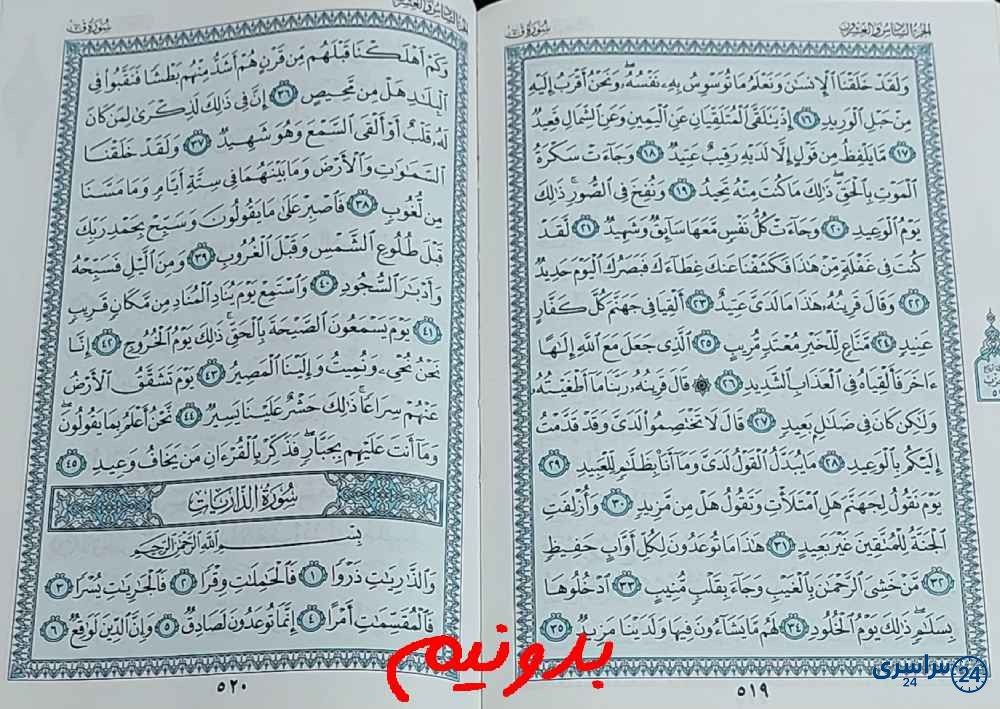 الجزء السادس والعشرون
سورة ق
وَلَقَدْ خَلَقْنَا ٱلْإِنسَٰنَ وَنَعْلَمُ مَا تُوَسْوِسُ بِهِۦ نَفْسُهُۥ ۖ وَنَحْنُ أَقْرَبُ إِلَيْهِ
مِنْ حَبْلِ ٱلْوَرِيدِ ١٦ إِذْ يَتَلَقَّى ٱلْمُتَلَقِّيَانِ عَنِ ٱلْيَمِينِ وَعَنِ ٱلشِّمَالِ قَعِيدٌ
١٧ مَّا يَلْفِظُ مِن قَوْلٍ إِلَّا لَدَيْهِ رَقِيبٌ عَتِيدٌ ١٨ وَجَآءَتْ سَكْرَةُ
ٱلْمَوْتِ بِٱلْحَقِّ ۖ ذَٰلِكَ مَا كُنتَ مِنْهُ تَحِيدُ ١٩ وَنُفِخَ فِى ٱلصُّورِ ۚ ذَٰلِكَ
يَوْمُ ٱلْوَعِيدِ ٢٠ وَجَآءَتْ كُلُّ نَفْسٍ مَّعَهَا سَآئِقٌ وَشَهِيدٌ ٢١ لَّقَدْ
كُنتَ فِى غَفْلَةٍ مِّنْ هَٰذَا فَكَشَفْنَا عَنكَ غِطَآءَكَ فَبَصَرُكَ ٱلْيَوْمَ حَدِيدٌ
٢٢ وَقَالَ قَرِينُهُۥ هَٰذَا مَا لَدَىَّ عَتِيدٌ ٢٣ أَلْقِيَا فِى جَهَنَّمَ كُلَّ كَفَّارٍ
عَنِيدٍ ٢٤ مَّنَّاعٍ لِّلْخَيْرِ مُعْتَدٍ مُّرِيبٍ ٢٥ ٱلَّذِى جَعَلَ مَعَ ٱللَّهِ إِلَٰهًا
ءَاخَرَ فَأَلْقِيَاهُ فِى ٱلْعَذَابِ ٱلشَّدِيدِ ٢٦ ۞ قَالَ قَرِينُهُۥ رَبَّنَا مَآ أَطْغَيْتُهُۥ
وَلَٰكِن كَانَ فِى ضَلَٰلٍۭ بَعِيدٍ ٢٧ قَالَ لَا تَخْتَصِمُوا۟ لَدَىَّ وَقَدْ قَدَّمْتُ
إِلَيْكُم بِٱلْوَعِيدِ ٢٨ مَا يُبَدَّلُ ٱلْقَوْلُ لَدَىَّ وَمَآ أَنَا۠ بِظَلَّٰمٍ لِّلْعَبِيدِ ٢٩
يَوْمَ نَقُولُ لِجَهَنَّمَ هَلِ ٱمْتَلَأْتِ وَتَقُولُ هَلْ مِن مَّزِيدٍ ٣٠ وَأُزْلِفَتِ
ٱلْجَنَّةُ لِلْمُتَّقِينَ غَيْرَ بَعِيدٍ ٣١ هَٰذَا مَا تُوعَدُونَ لِكُلِّ أَوَّابٍ حَفِيظٍ
٣٢ مَّنْ خَشِىَ ٱلرَّحْمَٰنَ بِٱلْغَيْبِ وَجَآءَ بِقَلْبٍ مُّنِيبٍ ٣٣ ٱدْخُلُوهَا
بِسَلَٰمٍ ۖ ذَٰلِكَ يَوْمُ ٱلْخُلُودِ ٣٤ لَهُم مَّا يَشَآءُونَ فِيهَا وَلَدَيْنَا مَزِيدٌ ٣٥
٥١٩
الجزء السادس والعشرون
سورة ق
وَكَمْ أَهْلَكْنَا قَبْلَهُم مِّن قَرْنٍ هُمْ أَشَدُّ مِنْهُم بَطْشًا فَنَقَّبُوا۟ فِى
ٱلْبِلَٰدِ هَلْ مِن مَّحِيصٍ ٣٦ إِنَّ فِى ذَٰلِكَ لَذِكْرَىٰ لِمَن كَانَ
لَهُۥ قَلْبٌ أَوْ أَلْقَى ٱلسَّمْعَ وَهُوَ شَهِيدٌ ٣٧ وَلَقَدْ خَلَقْنَا
ٱلسَّمَٰوَٰتِ وَٱلْأَرْضَ وَمَا بَيْنَهُمَا فِى سِتَّةِ أَيَّامٍ وَمَا مَسَّنَا
مِن لُّغُوبٍ ٣٨ فَٱصْبِرْ عَلَىٰ مَا يَقُولُونَ وَسَبِّحْ بِحَمْدِ رَبِّكَ
قَبْلَ طُلُوعِ ٱلشَّمْسِ وَقَبْلَ ٱلْغُرُوبِ ٣٩ وَمِنَ ٱلَّيْلِ فَسَبِّحْهُ
وَأَدْبَٰرَ ٱلسُّجُودِ ٤٠ وَٱسْتَمِعْ يَوْمَ يُنَادِ ٱلْمُنَادِ مِن مَّكَانٍ قَرِيبٍ
٤١ يَوْمَ يَسْمَعُونَ ٱلصَّيْحَةَ بِٱلْحَقِّ ۚ ذَٰلِكَ يَوْمُ ٱلْخُرُوجِ ٤٢ إِنَّا
نَحْنُ نُحْىِۦ وَنُمِيتُ وَإِلَيْنَا ٱلْمَصِيرُ ٤٣ يَوْمَ تَشَقَّقُ ٱلْأَرْضُ
عَنْهُمْ سِرَاعًا ۚ ذَٰلِكَ حَشْرٌ عَلَيْنَا يَسِيرٌ ٤٤ نَّحْنُ أَعْلَمُ بِمَا يَقُولُونَ ۖ
وَمَآ أَنتَ عَلَيْهِم بِجَبَّارٍ ۖ فَذَكِّرْ بِٱلْقُرْءَانِ مَن يَخَافُ وَعِيدِ ٤٥
سُورَةُ الذَّارِيَاتِ
بِسْمِ ٱللَّهِ ٱلرَّحْمَٰنِ ٱلرَّحِيمِ
وَٱلذَّٰرِيَٰتِ ذَرْوًا ١ فَٱلْحَٰمِلَٰتِ وِقْرًا ٢ فَٱلْجَٰرِيَٰتِ يُسْرًا ٣
فَٱلْمُقَسِّمَٰتِ أَمْرًا ٤ إِنَّمَا تُوعَدُونَ لَصَادِقٌ ٥ وَإِنَّ ٱلدِّينَ لَوَٰقِعٌ ٦
٥٢٠
بدونیم
سراسری
24
24